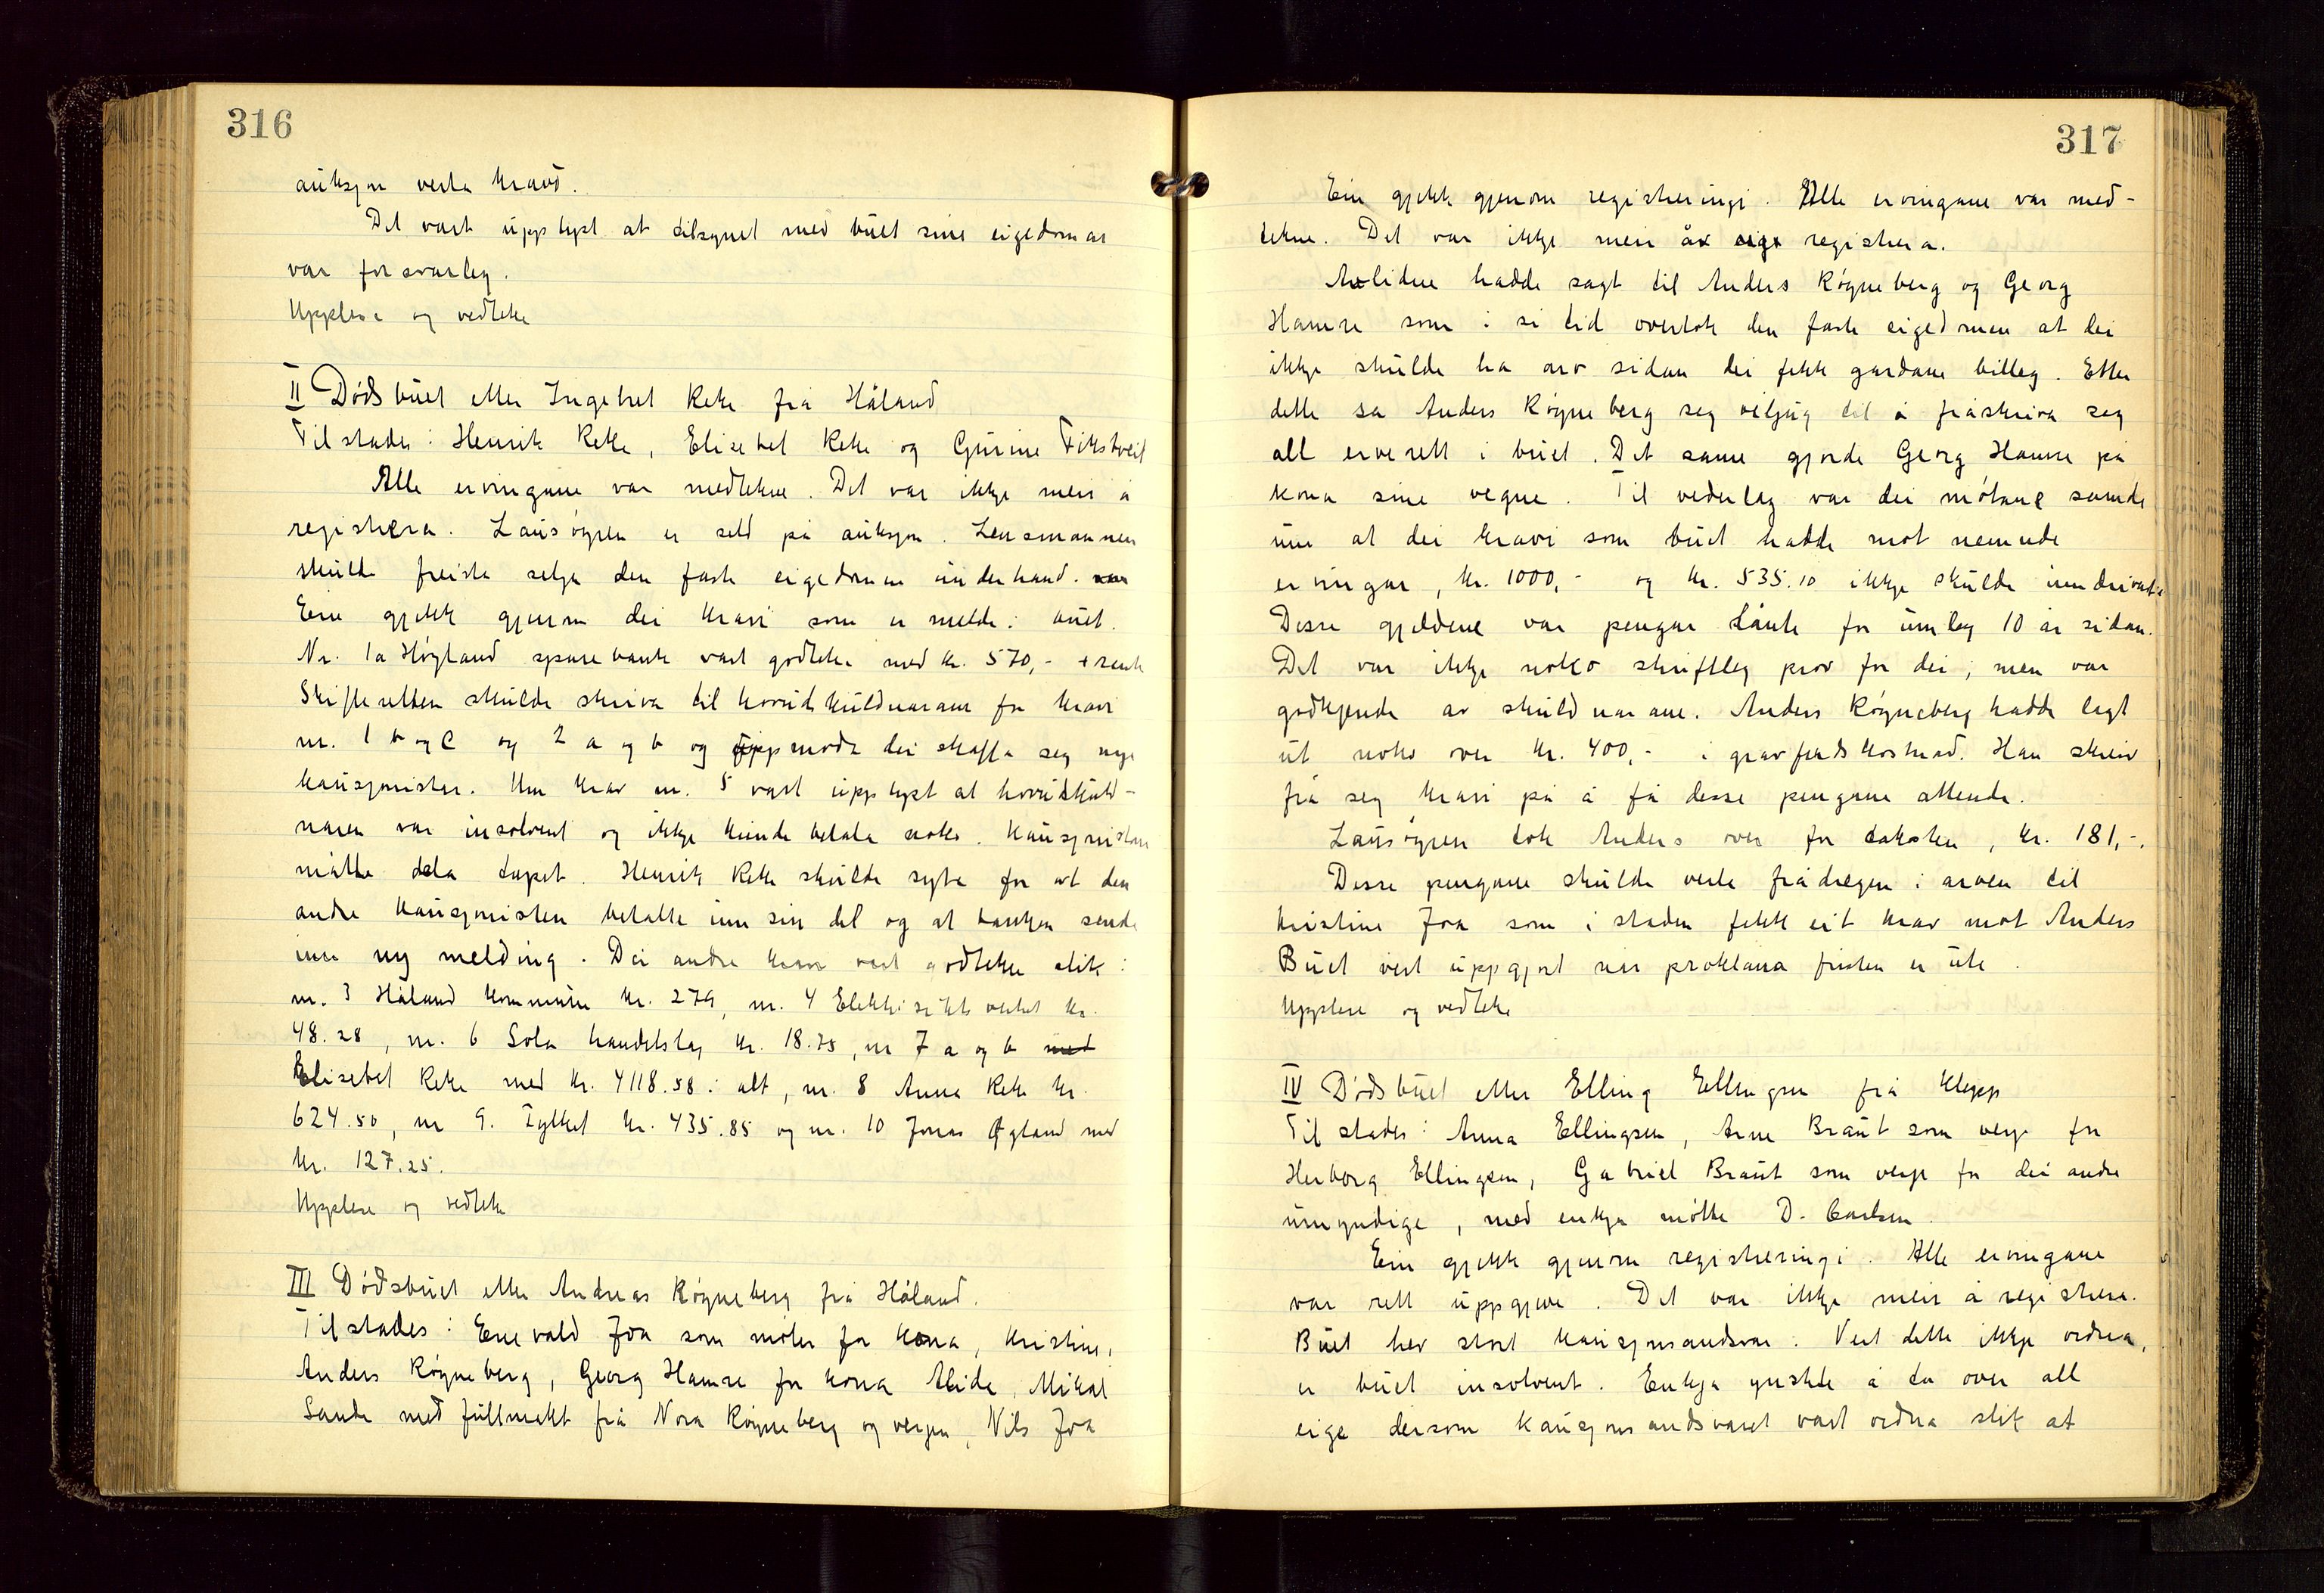 316
auksjon verta kravd.
Det vart upplyst at tilsynet med buet sine eigedomar
var forsvarleg.
Upplese og vedteke
II Dødsbuet etter Ingebret Reke frå Håland
Tilstades: Henrik Reke, Elisebet Reke og Gurine Tikstveit
Alle ervingane var medtekne. Det var ikkje meir å
registrera. Lausøyren er seld på auksjon. Lensmannen
skulde freista selja den faste eigedomen underhand.
Ein gjekk gjenom dei kravi som er melde i buet.
Nr. 1a Høyland sparebank vart godteke med kr. 570,- + rente
Skifteretten skulde skriva til hovudskuldnarane for kravi
nr. 1 b og c og 2 a og b og uppmoda dei skaffa seg nye
kausjonistar. Um krav nr. 5 vart upplyst at hovudskuld-
naren var insolvent og ikkje kunde betala noko. Kausjonistane
måtte dela tapet. Henrik Reke skulde syta for at den
andre kausjonisten betalte inn sin del og at banken sende
inn ny melding. Dei andre kravi vart godtekne slik:
nr. 3 Håland kommune kr. 279, nr. 4 Elektrisitetsverket kr.
48.28, nr. 6 Sola handelslag kr. 18.75, nr 7 a og b med
Elisebet Reke med kr. 4118.58 i alt, nr. 8 Anna Reke kr.
624.50, nr 9. Fylket kr. 435.85 og nr. 10 Jonas Øgland med
kr. 127.25.
Upplese og vedteke
III Dødsbuet etter Andreas Røyneberg frå Håland.
Tilstades: Enevald Joa som møter for kona, Kristine,
Anders Røyneberg, Georg Hamre for kona Alida, Mikal
Sande med fullmakt frå Nora Røyneberg og vergen, Nils Joa
317
Ein gjekk gjenom registreringi. Alle ervingane var med-
tekne. Det var ikkje meir å registrera.
Avlidne hadde sagt til Anders Røyneberg og Georg
Hamre som i si tid overtok den faste eigedomen at dei
ikkje skulde ha arv sidan dei fekk gardane billeg. Etter
dette sa Anders Røyneberg seg viljug til å fråskriva seg
all arverett i buet. Det same gjorde Georg Hamre på
kona sine vegne. Til vederlag var dei møtane samde
um at dei kravi som buet hadde mot nemnde
ervingar, kr. 1000,- og kr. 535.10 ikkje skulde inndrivast.
Desse gjeldene var pengar lånte for umlag 10 år sidan.
Det var ikkje noko skriftleg prov for dei, men var
godkjende av skuldnarane. Anders Røyneberg hadde lagt
ut noko over kr. 400,- i gravferdskostnad. Han skreiv
frå seg kravi på å få desse pengane attende.
Lausøyren tok Anders over for taksten, kr. 181,-.
Desse pengane skulde verte frådregne i arven til
Kristine Joa som i staden fekk eit krav mot Anders
Buet vert uppgjort når proklama fristen er ute.
Upplese og vedteke
IV Dødsbuet etter Elling Ellingsen frå Klepp
Tilstades: Anna Ellingsen, Arne Braut som verje for
Herborg Ellingsen, Gabriel Braut som verje for dei andre
umyndige, med enkja møtte D. Carlsen.
Ein gjekk gjenom registreringi. Alle ervingane
var rett uppgjevne. Det var ikkje meir å registrera.
Buet hev stort kausjonsandsvar. Vert dette ikkje ordna,
er buet insolvent. Enkja ynskte å ta over all
eige dersom kausjonsandsvaret vart ordna slik at